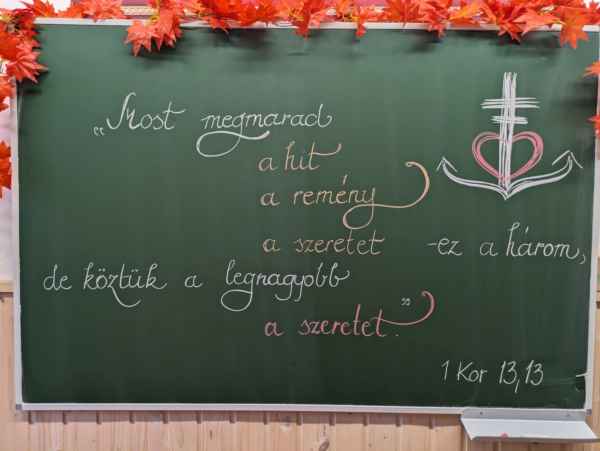 „Most megmarad
a hit
a remény
a szeretet -ez a három,
de köztük a legnagyobb
a szeretet.”
1 Kor 13,13